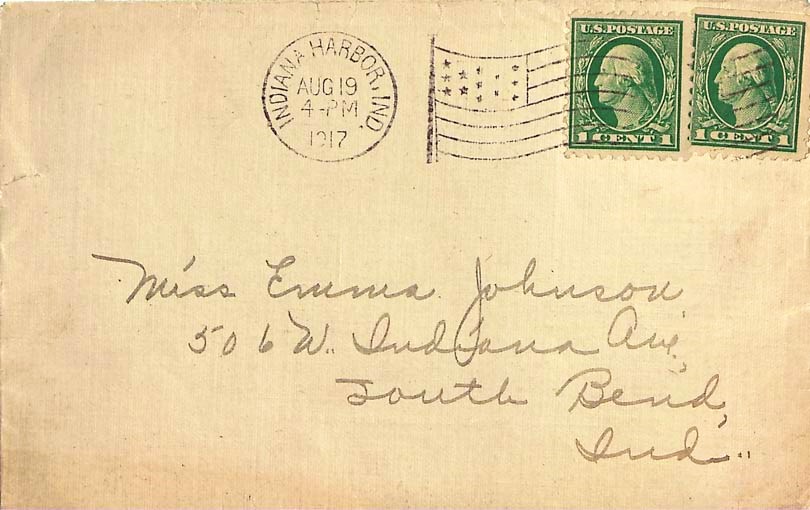 INDIANA HARBOR, IND.
AUG 19
4-PM
1917
U.S.POSTAGE
1 CENT 1
U.S.POSTAGE
1 CENT 1
Miss Emma Johnson
506 W. Indiana Ave,
South Bend,
Ind..